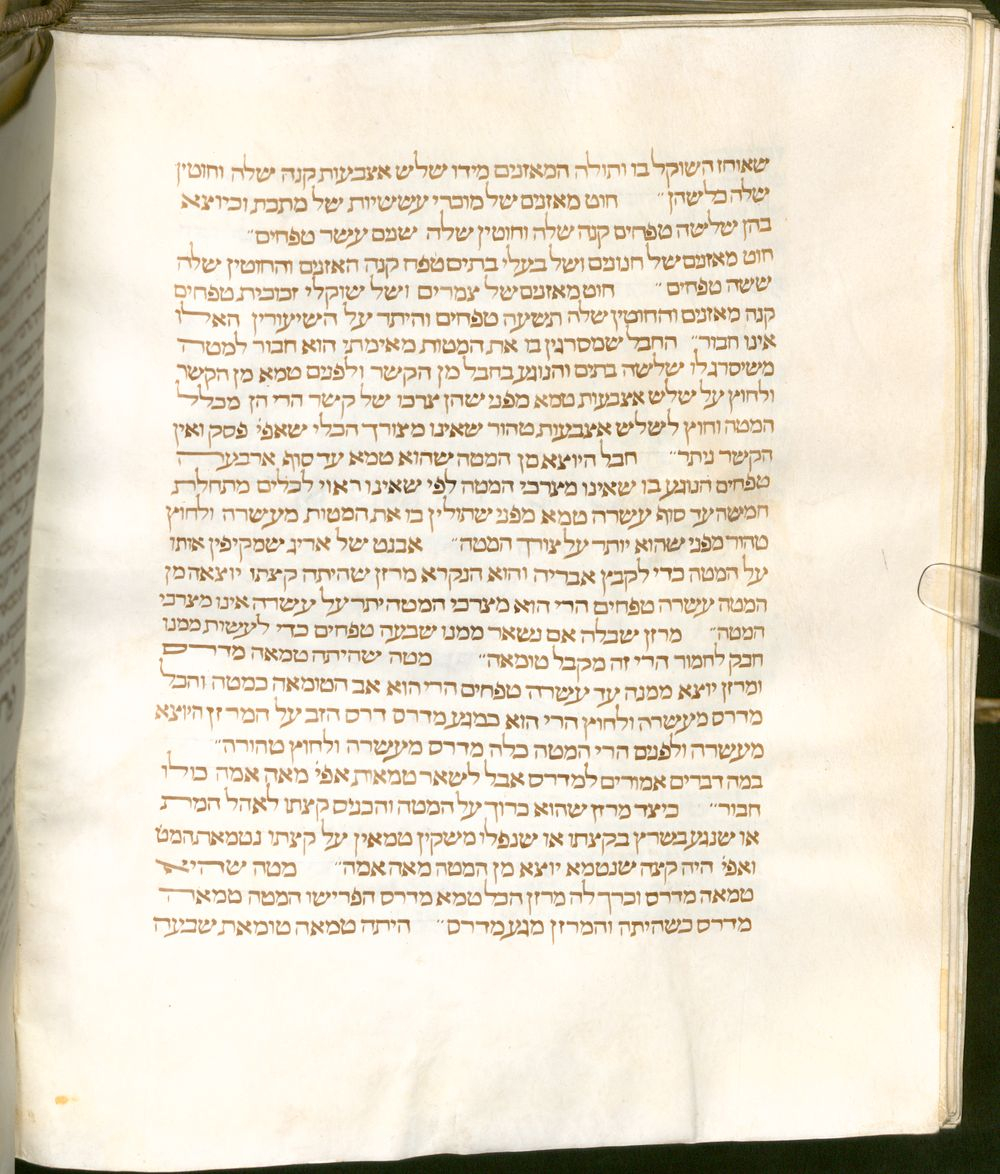 שאוחז השוקל בו ותולה המאזנים מידו שלש אצבעות קנה שלה וחוטין
שלה כל שהן״ חוט מאזנים של מוכרי עששיות של מתכת וכיוצא
בהן שלשה טפחים קנה שלה וחוטין שלה שנים עשר טפחים״
חוט מאזנים של חנונים ושל בעלי בתים טפח קנה האזנים והחוטין שלה
ששה טפחים״ חוט מאזנים של צמרים ושל שוקלי זכוכית טפחים
קנה מאזנים והחוטין שלה תשעה טפחים והיתר על השיעורין האלו
אינו חבור״ החבל שמסרגין בו את המטות מאימתי הוא חבור למטה
משיסרג לו שלשה בתים והנוגע בחבל מן הקשר ולפנים טמא מן הקשר
ולחוץ על שלש אצבעות טמא מפני שהן צרכו של קשר הרי הן מכלל
המטה וחוץ לשלש אצבעות טהור שאינו מצורך הכלי שאפי׳ פסק ואין
הקשר ניתר״ חבל היוצא מן המטה שהוא טמא עד סוף ארבעה
טפחים הנוגע בו שאינו מצרכי המטה לפי שאינו ראוי לכלים מתחלת
חמישה עד סוף עשרה טמא מפני שתולין בו את המטות מעשרה ולחוץ
טהור מפני שהוא יותר על צורך המטה״ אבנט של אריג שמקיפין אותו
על המטה כדי לקבץ אבריה והוא הנקרא מרזן שהיתה קצתו יוצאה מן
המטה עשרה טפחים הרי הוא מצרכי המטה יתר על עשרה אינו מצרכי
המטה״ מרזן שבלה אם נשאר ממנו שבעה טפחים כדי לעשות ממנו
חבק לחמור הרי זה מקבל טומאה״ מטה שהיתה טמאה מדרס
ומרזן יוצא ממנה עד עשרה טפחים הרי הוא אב הטומאה כמטה והכל
מדרס מעשרה ולחוץ הרי הוא כמגע מדרס דרס הזב על המרזן היוצא
מעשרה ולפנים הרי המטה כלה מדרס מעשרה ולחוץ טהורה״
במה דברים אמורים למדרס אבל לשאר טמאות אפי׳ מאה אמה כולו
חבור״ כיצד מרזן שהוא כרוך על המטה והכניס קצתו לאהל המת
או שנגע בשרץ בקצתו או שנפלו משקין טמאין על קצתו נטמאת המט
ואפי׳ היה קצה שנטמא יוצא מן המטה מאה אמה״ מטה שהיא
טמאה מדרס וכרך לה מרזן הכל טמא מדרס הפרישו המטה טמאה
מדרס כשהיתה והמרזן מגע מדרס״ היתה טמאה טומאת שבעה